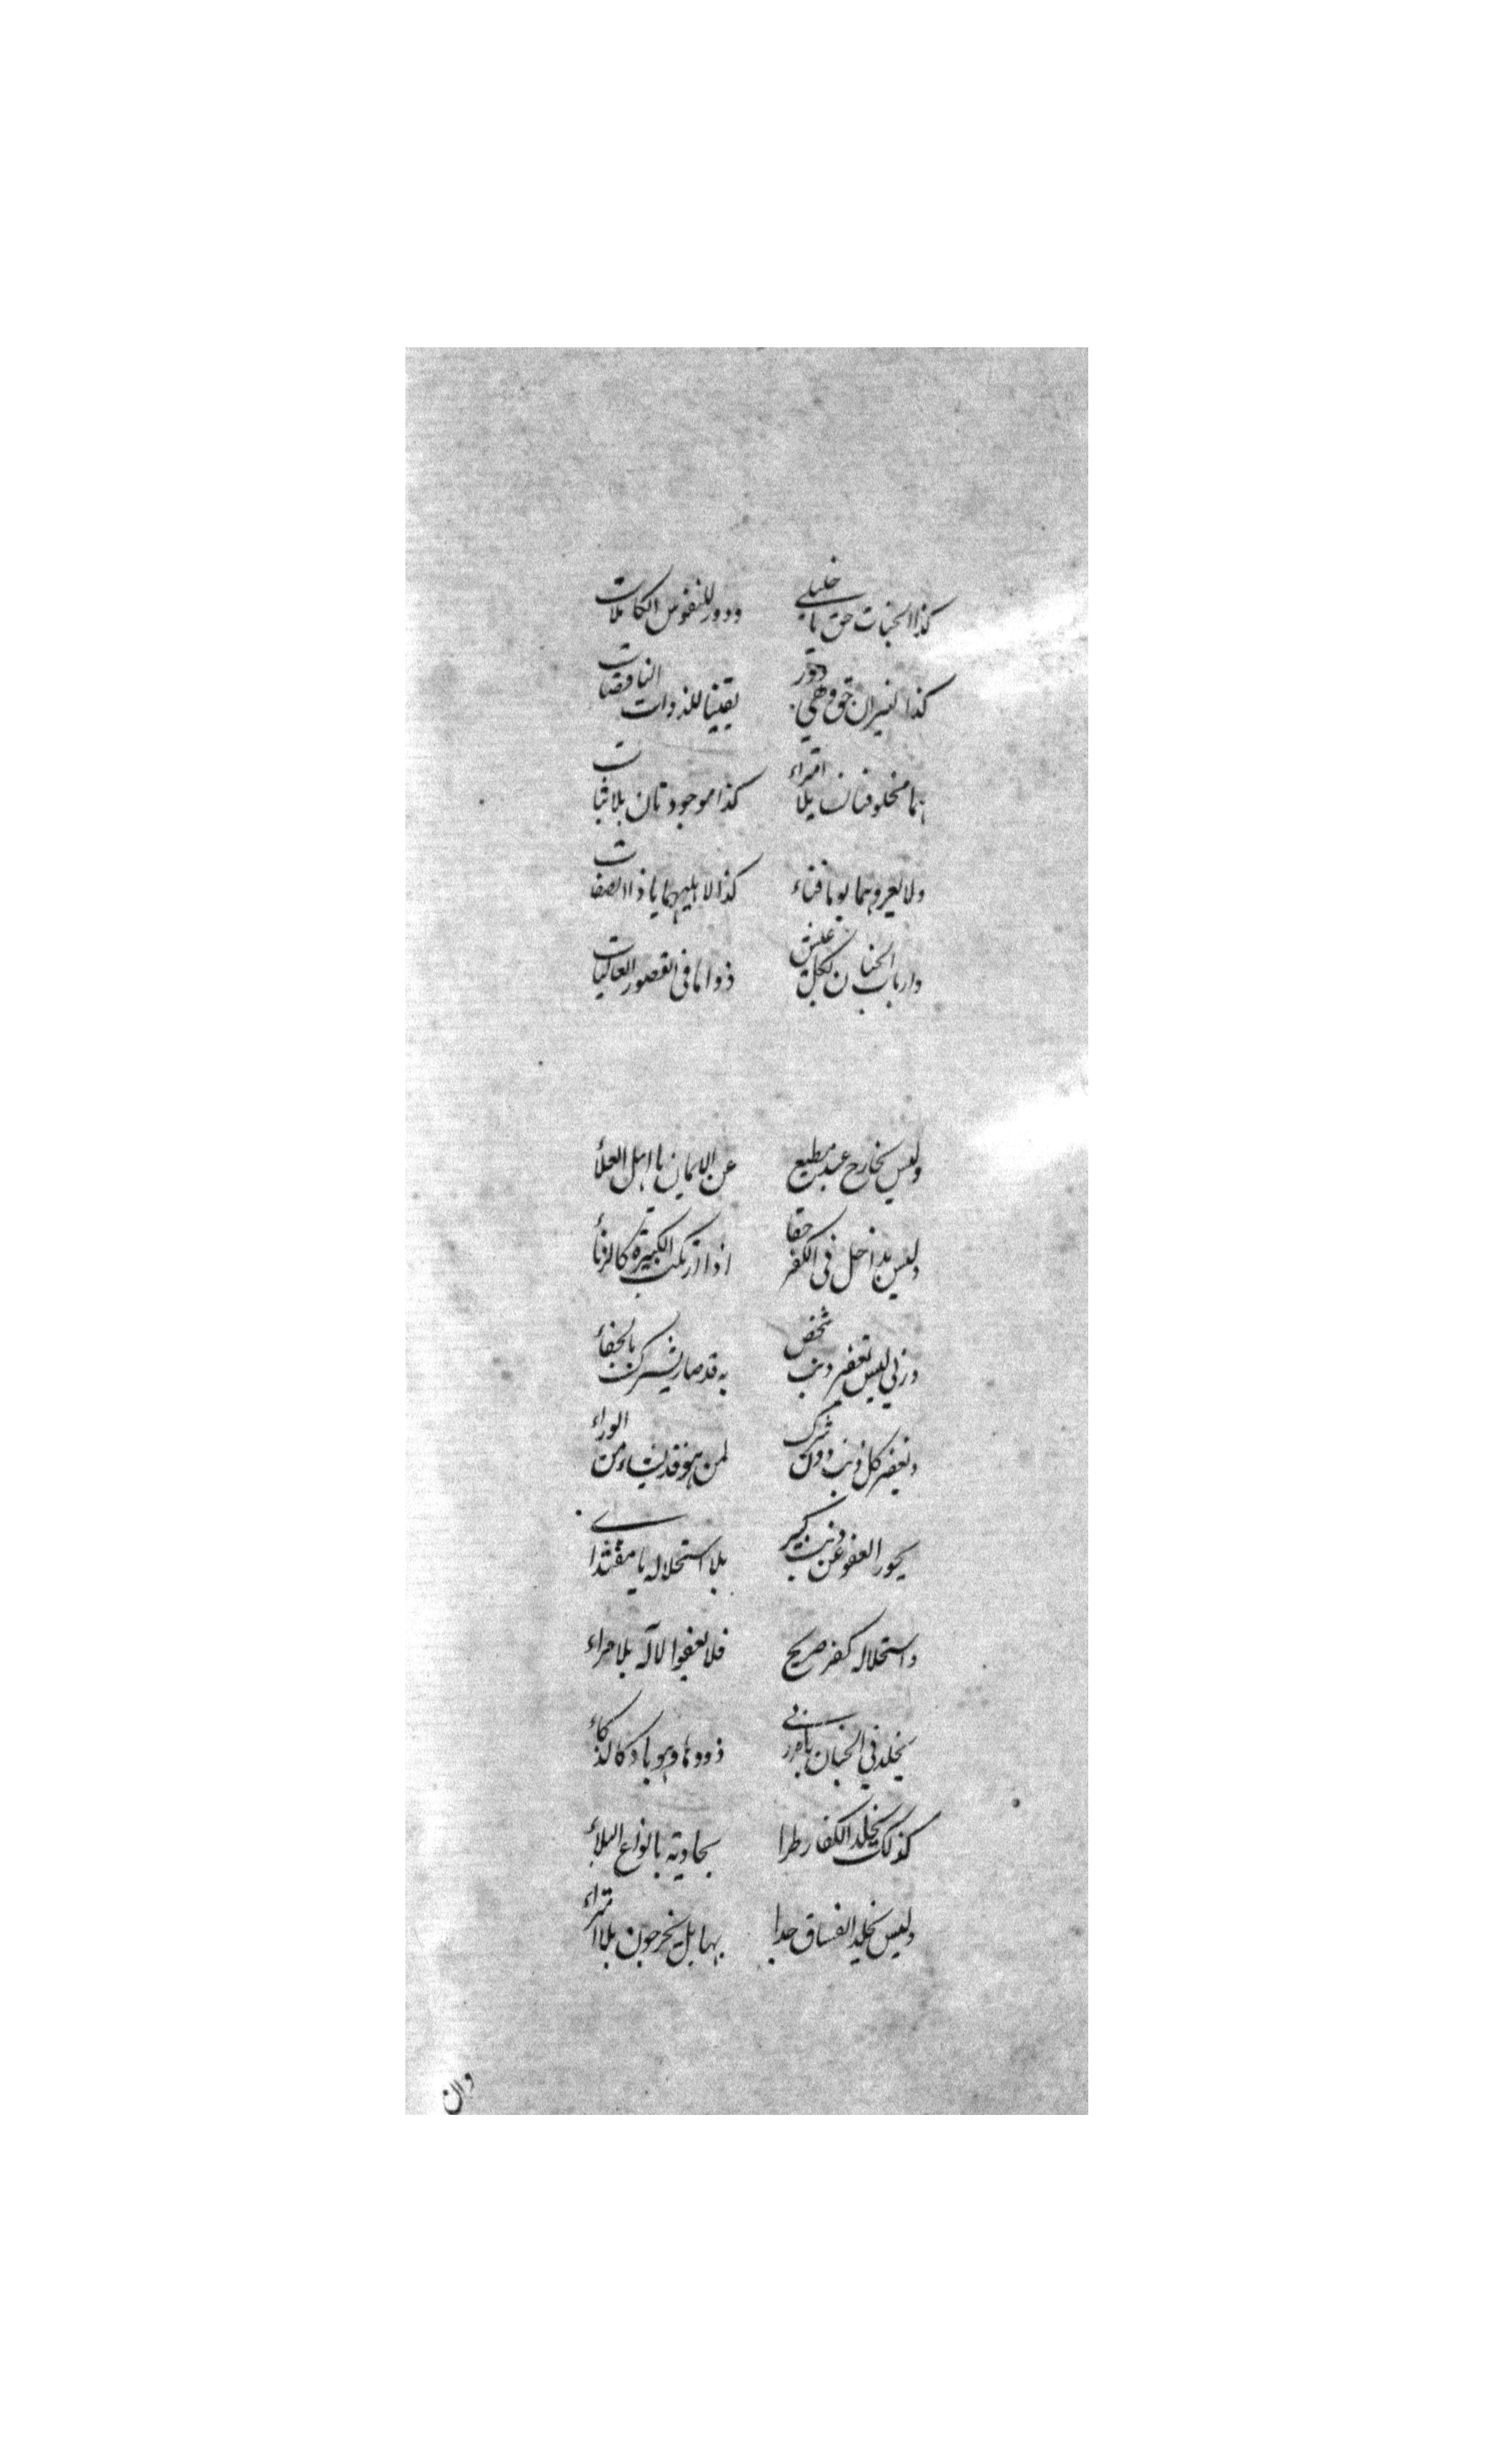 كذا الجنات حق يا خليلي ودور للنفوس الكاملات
كذا النيران حق وهي دور يقينا للذوات الناقصات
هما مخلوقتان بلا امتراء كذا موجودتان بلا ثبات
ولا يعروهما يوما فناء كذا لاهليهما يا ذا الصفات
وارباب الجنان لكل عيش ذواما في القصور العاليات
وليس بخارج عبد مطيع عن الايمان يا اهل العلاء
وليس بداخل في الكفر حقا اذا ارتكب الكبيرة كالزناء
وربي ليس يغفر ذنب شخص به قد صار يشرك بالخفاء
ويغفر كل ذنب دون شرك لمن هو قد يشاء من الوراء
يجوز العفو عن ذنب كبير بلا استحلاله يا مقتداي
واستحلاله كفر صريح فلا يعفوا لاله بلا مراء
يخلد في الجنان باهر ربي ذووها وهو باد كالذكاء
كذلك يخلد الكفار طرا بحاوية بانواع البلاء
وليس يخلد الفساق جدا بها بل يخرجون بلا امتراء
وان